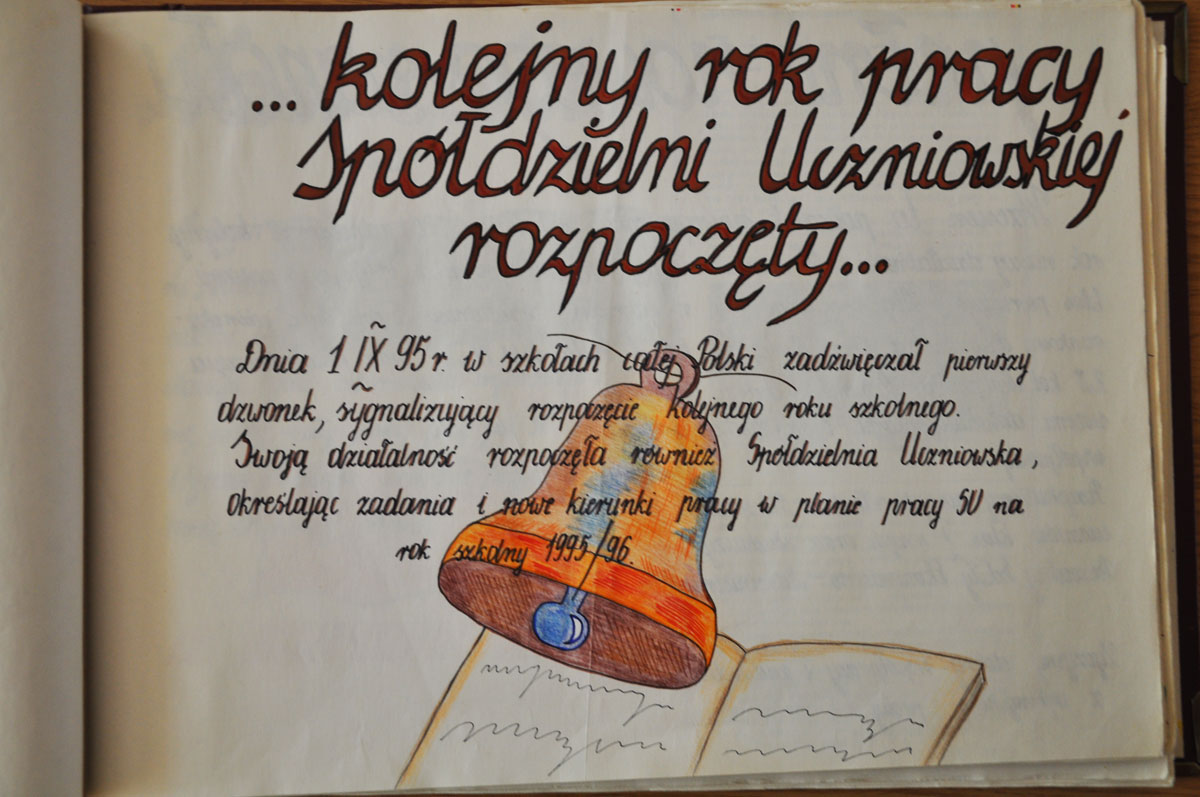 ... kolejny rok pracy
Spółdzielni Uczniowskiej
rozpoczęty...
Dnia 1 IX 95 r. w szkołach całej Polski zadźwięczał pierwszy
dzwonek, sygnalizujący rozpoczęcie kolejnego roku szkolnego.
Swoją działalność rozpoczęła również Spółdzielnia Uczniowska,
określając zadania i nowe kierunki pracy w planie pracy SU na
rok szkolny 1995/96.